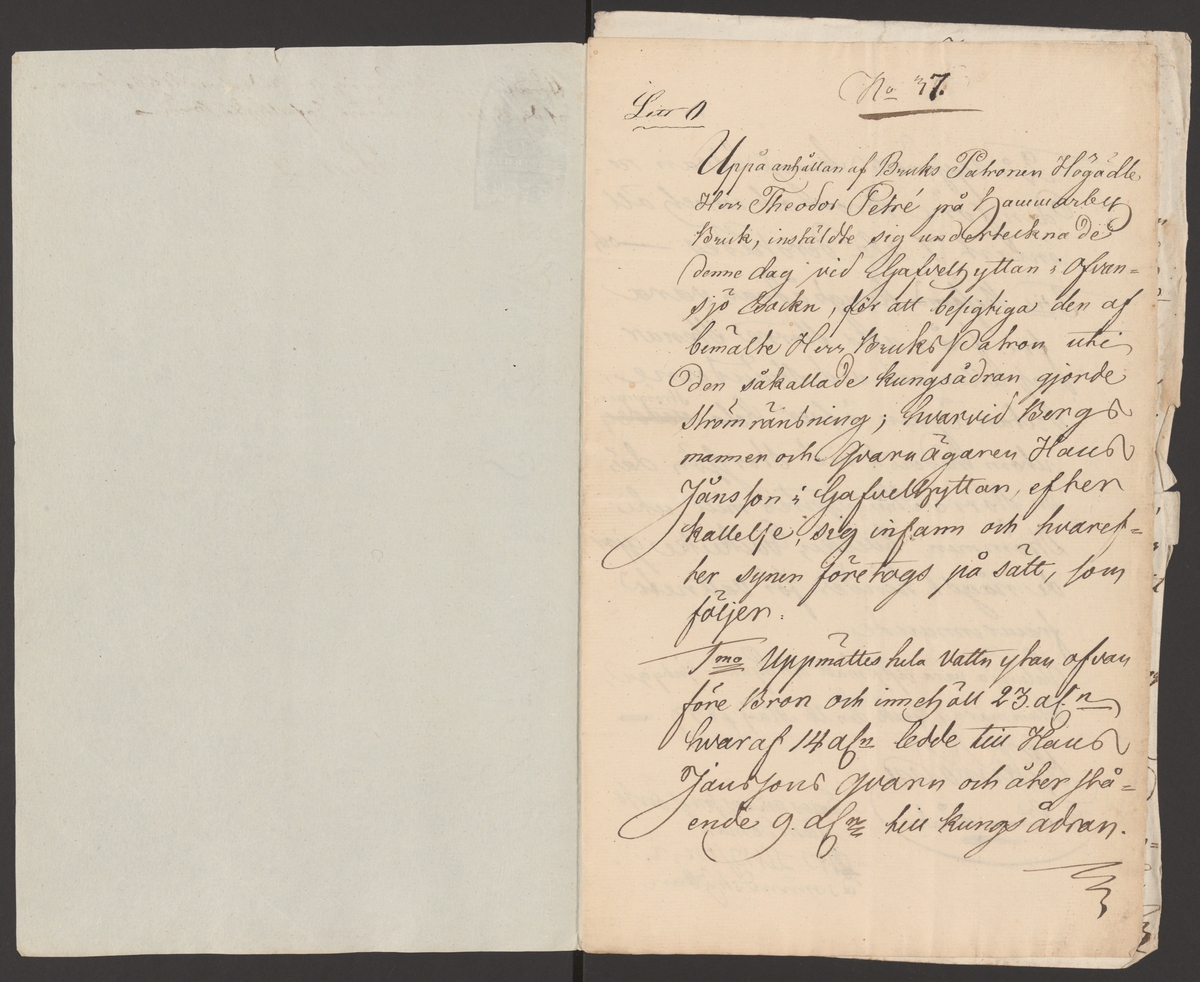 No 37.
Litt O
Uppå anhållan af Bruks Patronen Högädle
Herr Theodor Petré på Hammarby
Bruk, instäldte sig undertecknade
denne dag vid Gafvelhyttan i Ofvan=
sjö Sockn, för att besigtiga den af
bemälte Herr Bruks Patron uti
den såkallade kungsådran gjorde
strömränsning; hvarvid Bergs
mannen och Qvarnägaren Hans
Jånsson i Gafvelhyttan, efter
kallelse, sig infann och hvaref=
ter synen företogs på sätt, som
följer:
1mo Uppmättes hela Vattnytan ofvan
före Bron och innehåll 23. alnr
hvaraf 14 alnr ledde till Hans
Jånssons qvarn och återstå=
ende 9. alnr till kungsådran.